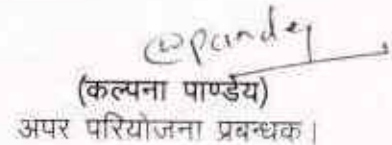 @pandey
(कल्पना पाण्डेय)
अपर परियोजना प्रबन्धक।